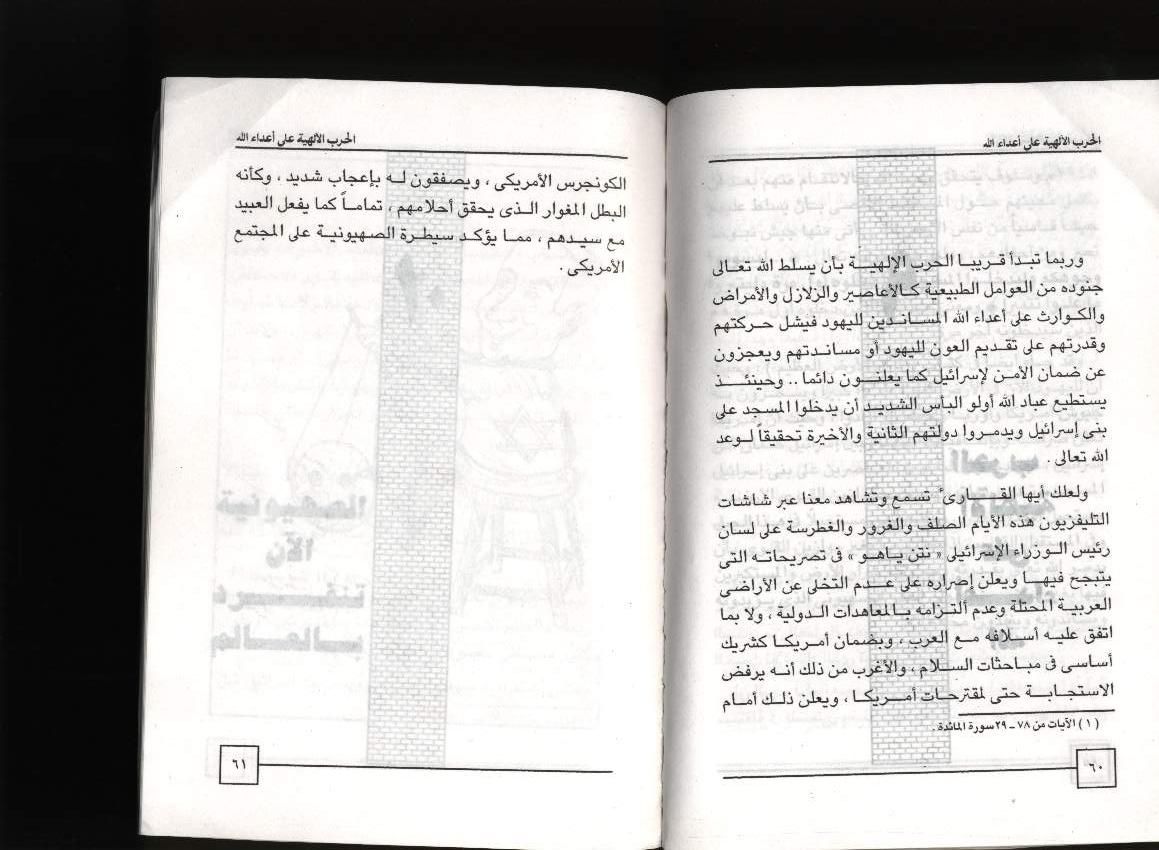 الحرب الألهية على أعداء الله
وربما تبدأ قريبا الحرب الإلهية بأن يسلط الله تعالى
جنوده من العوامل الطبيعية كالأعاصير والزلازل والأمراض
والكوارث على أعداء الله المساندين لليهود فيشل حركتهم
وقدرتهم على تقديم العون لليهود أو مساندتهم ويعجزون
عن ضمان الأمن لإسرائيل كما يعلنون دائما .. وحينئذ
يستطيع عباد الله أولو البأس الشديد أن يدخلوا المسجد على
بنى إسرائيل ويدمروا دولتهم الثانية والأخيرة تحقيقاً لوعد
الله تعالى .
ولعلك أيها القارئ تسمع وتشاهد معنا عبر شاشات
التليفزيون هذه الأيام الصلف والغرور والغطرسة على لسان
رئيس الوزراء الإسرائيلى « نتن ياهو » فى تصريحاته التى
يتبجح فيها ويعلن إصراره على عدم التخلى عن الأراضى
العربية المحتلة وعدم ألتزامه بالمعاهدات الدولية ، ولا بما
اتفق عليه أسلافه مع العرب ، وبضمان أمريكا كشريك
أساسى فى مباحثات السلام ، والأغرب من ذلك أنه يرفض
الاستجابة حتى لمقترحات أمريكا ، ويعلن ذلك أمام
( ١ ) الآيات من ٧٨ – ٢٩ سورة المائدة .
٦٠
الحرب الألهية على أعداء الله
الكونجرس الأمريكى ، ويصفقون له بإعجاب شديد ، وكأنه
البطل المغوار الذى يحقق أحلامهم ، تماماً كما يفعل العبيد
مع سيدهم ، مما يؤكد سيطرة الصهيونية على المجتمع
الأمريكى .
الصهيونية
الآن
تنفرد
بالعالم
٦١